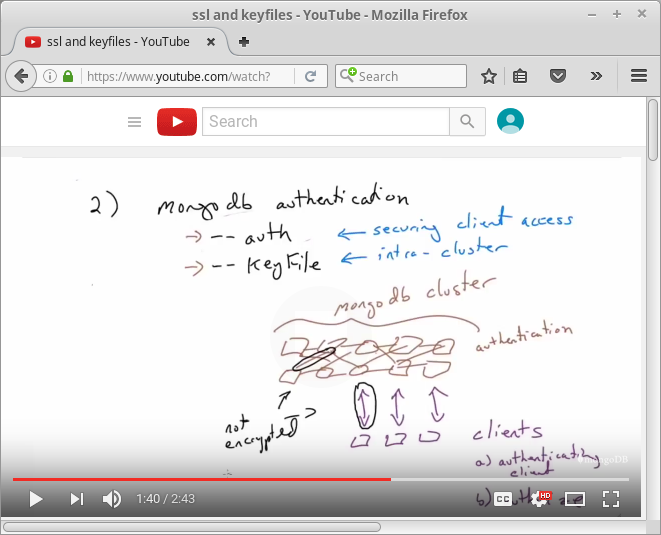 ssl and keyfiles - YouTube - Mozilla Firefox
ssl and keyfiles - YouTube
https://www.youtube.com/watch?
Search
Search
2) mongodb authentication
→ -- auth ← securing client access
→ -- keyFile ← intra-cluster
mongodb cluster
authentication
not
encrypted
clients
a) authenticating
client
b)
mongoDB
1:40 / 2:43
CC
HD